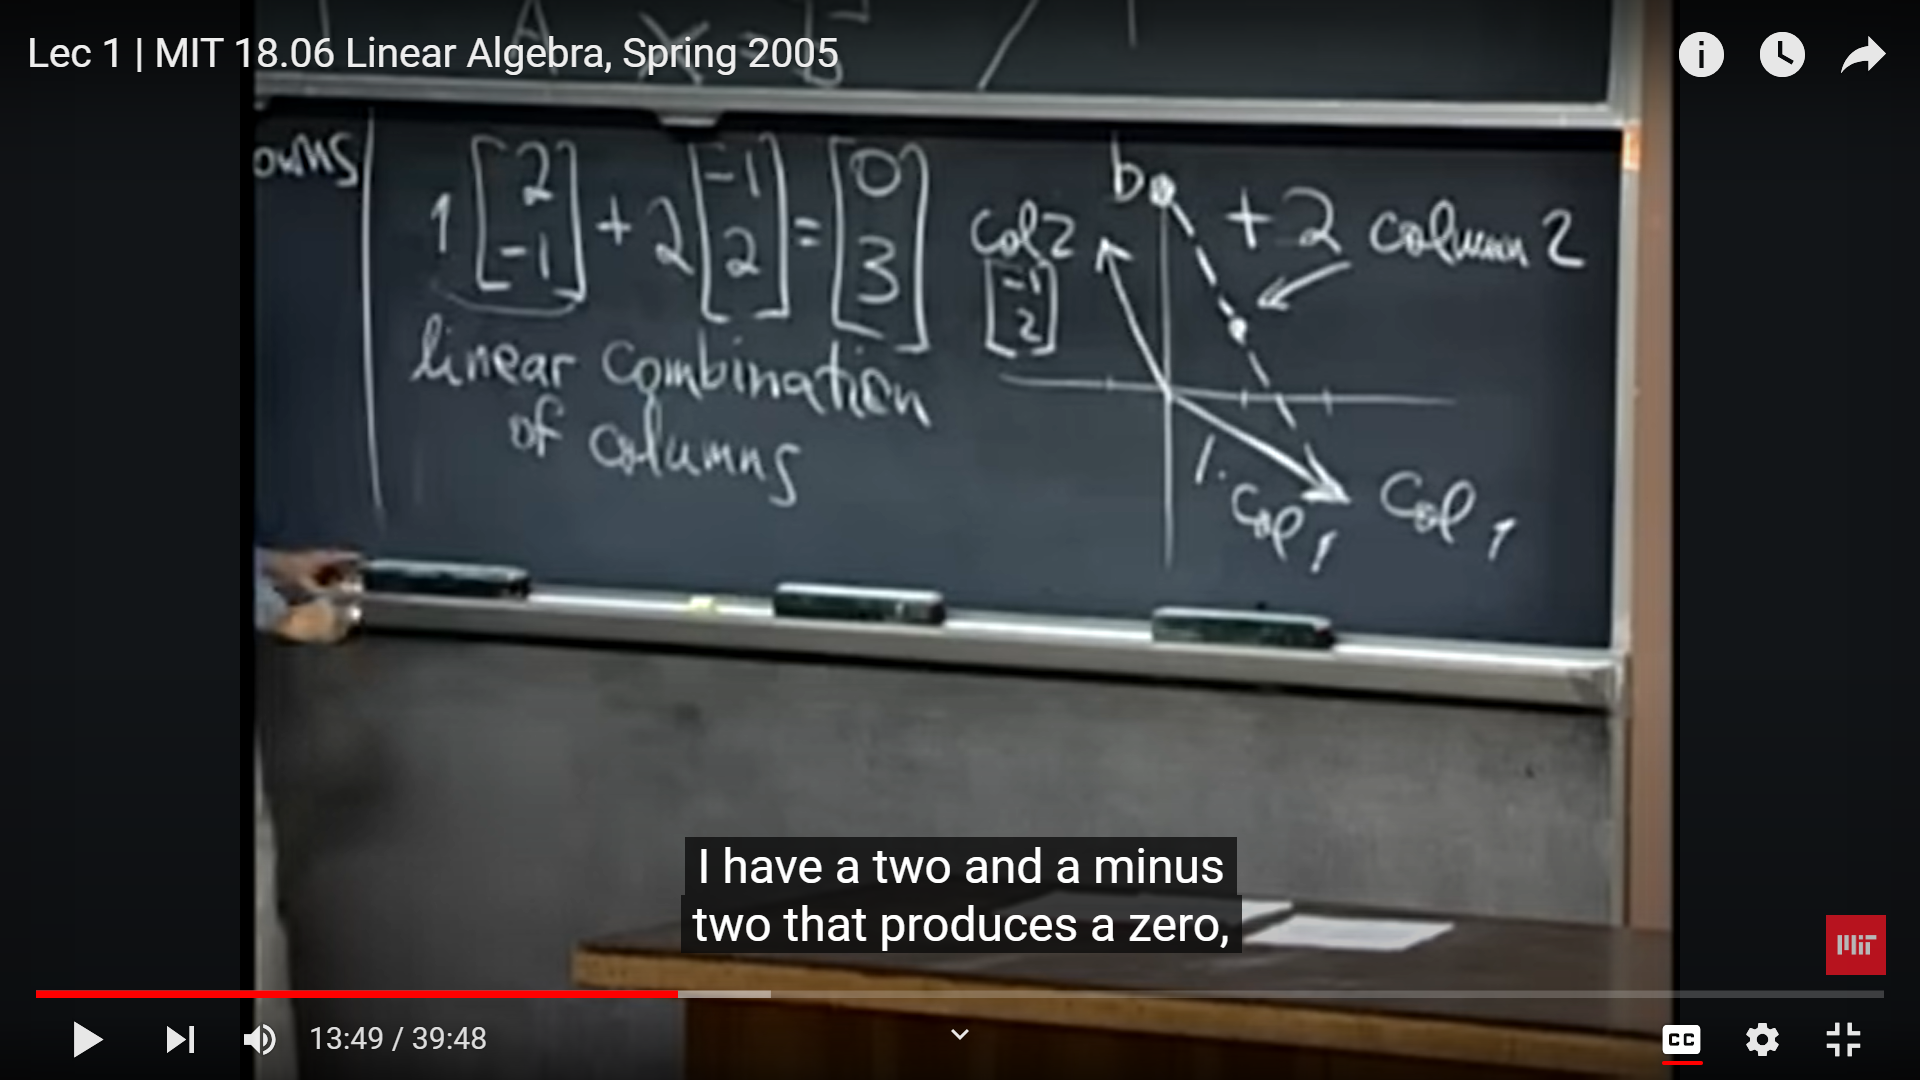 Lec 1 | MIT 18.06 Linear Algebra, Spring 2005
A x = b
owns
1 [2 -1] + 2 [-1 2] = [0 3]
linear combination
of columns
b
+2 column 2
col 2
[-1 2]
1. col 1
Col 1
I have a two and a minus
two that produces a zero,
MIT
13:49 / 39:48
CC